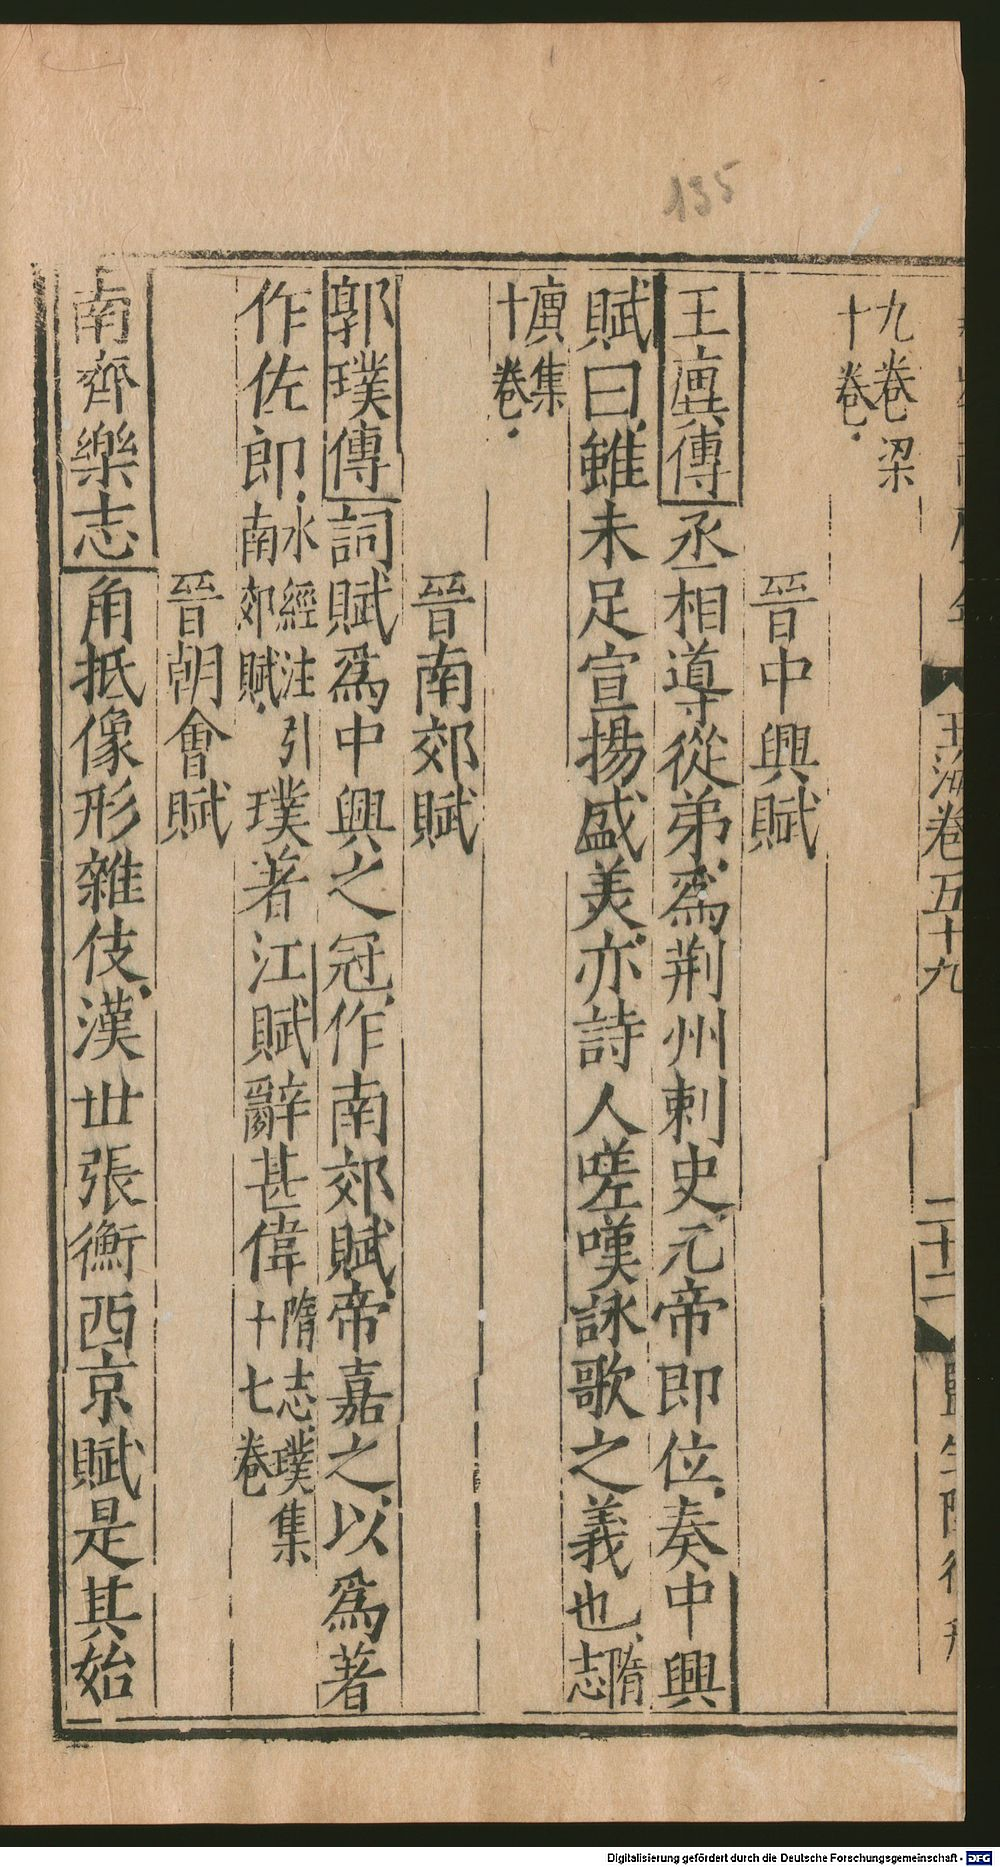 九卷梁
十卷
晉中興賦
王廙傳丞相導從弟爲荆州刺史元帝即位奏中興
賦曰雖未足宣揚盛美亦詩人嗟嘆詠歌之義也隋志
廙集
十卷
晉南郊賦
郭璞傳詞賦爲中興之冠作南郊賦帝嘉之以爲著
作佐郎水經注引南郊賦璞著江賦辭甚偉隋志璞集十七卷
晉朝會賦
南齊樂志角抵像形雜伎漢丗張衡西京賦是其始
玉海卷五十九
二十二
135
Digitalisierung gefördert durch die Deutsche Forschungsgemeinschaft - DFG